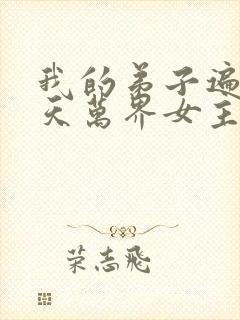 我的弟子遍
天萬界女主
荣志飛